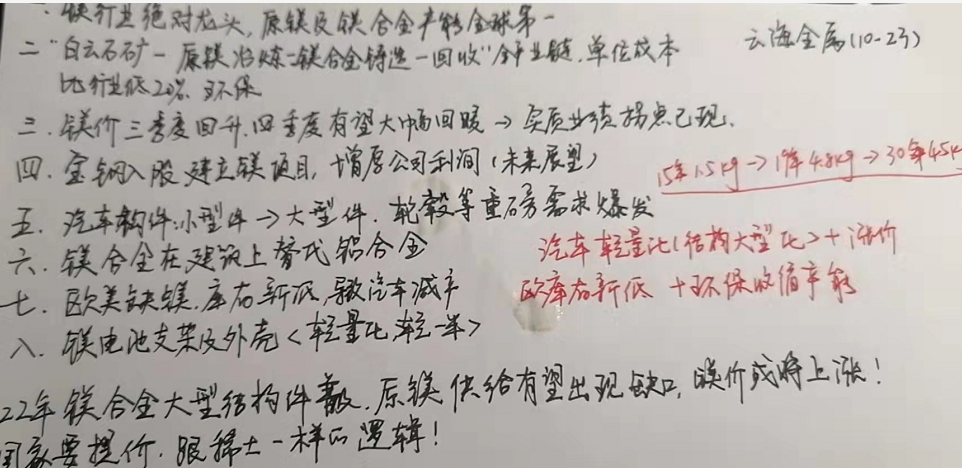 镁行业绝对龙头,原镁及镁合金产能全球第一
云海金属(10-23)
二"白云石矿-原镁冶炼-镁合金铸造-回收"全产业链,单位成本
比行业低20%,环保
三.镁价三季度回升,四季度有望大幅回暖→实质业绩拐点已现.
四.宝钢入股建立镁项目,增厚公司利润(未来展望)
15年1.5kg→19年4.8kg→30年45k
五.汽车构件:小型件→大型件.轮毂等重磅需求爆发
六.镁合金在建筑上替代铝合金
汽车轻量化(结构大型化)+涨价
七.欧美缺镁,库存新低,导致汽车减产
欧库存新低+环保收缩产能
八.镁电池支架及外壳<轻量化,轻一半>
22年镁合金大型结构件,原镁供给有望出现缺口,镁价或将上涨!
国家要提价.跟稀土一样的逻辑!